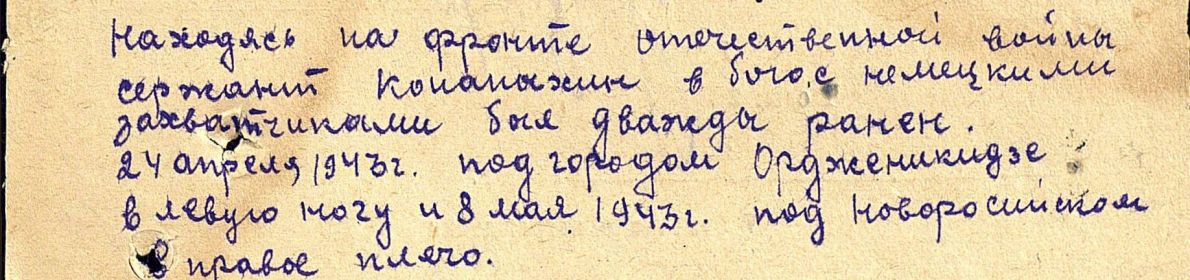 Находясь на фронте отечественной войны
сержант Копапыхин в бою с немецкими
захватчиками был дважды ранен.
24 апреля 1943г. под городом Ордженикидзе
в левую ногу и 8 мая 1943г. под Новоросийском
в правое плечо.